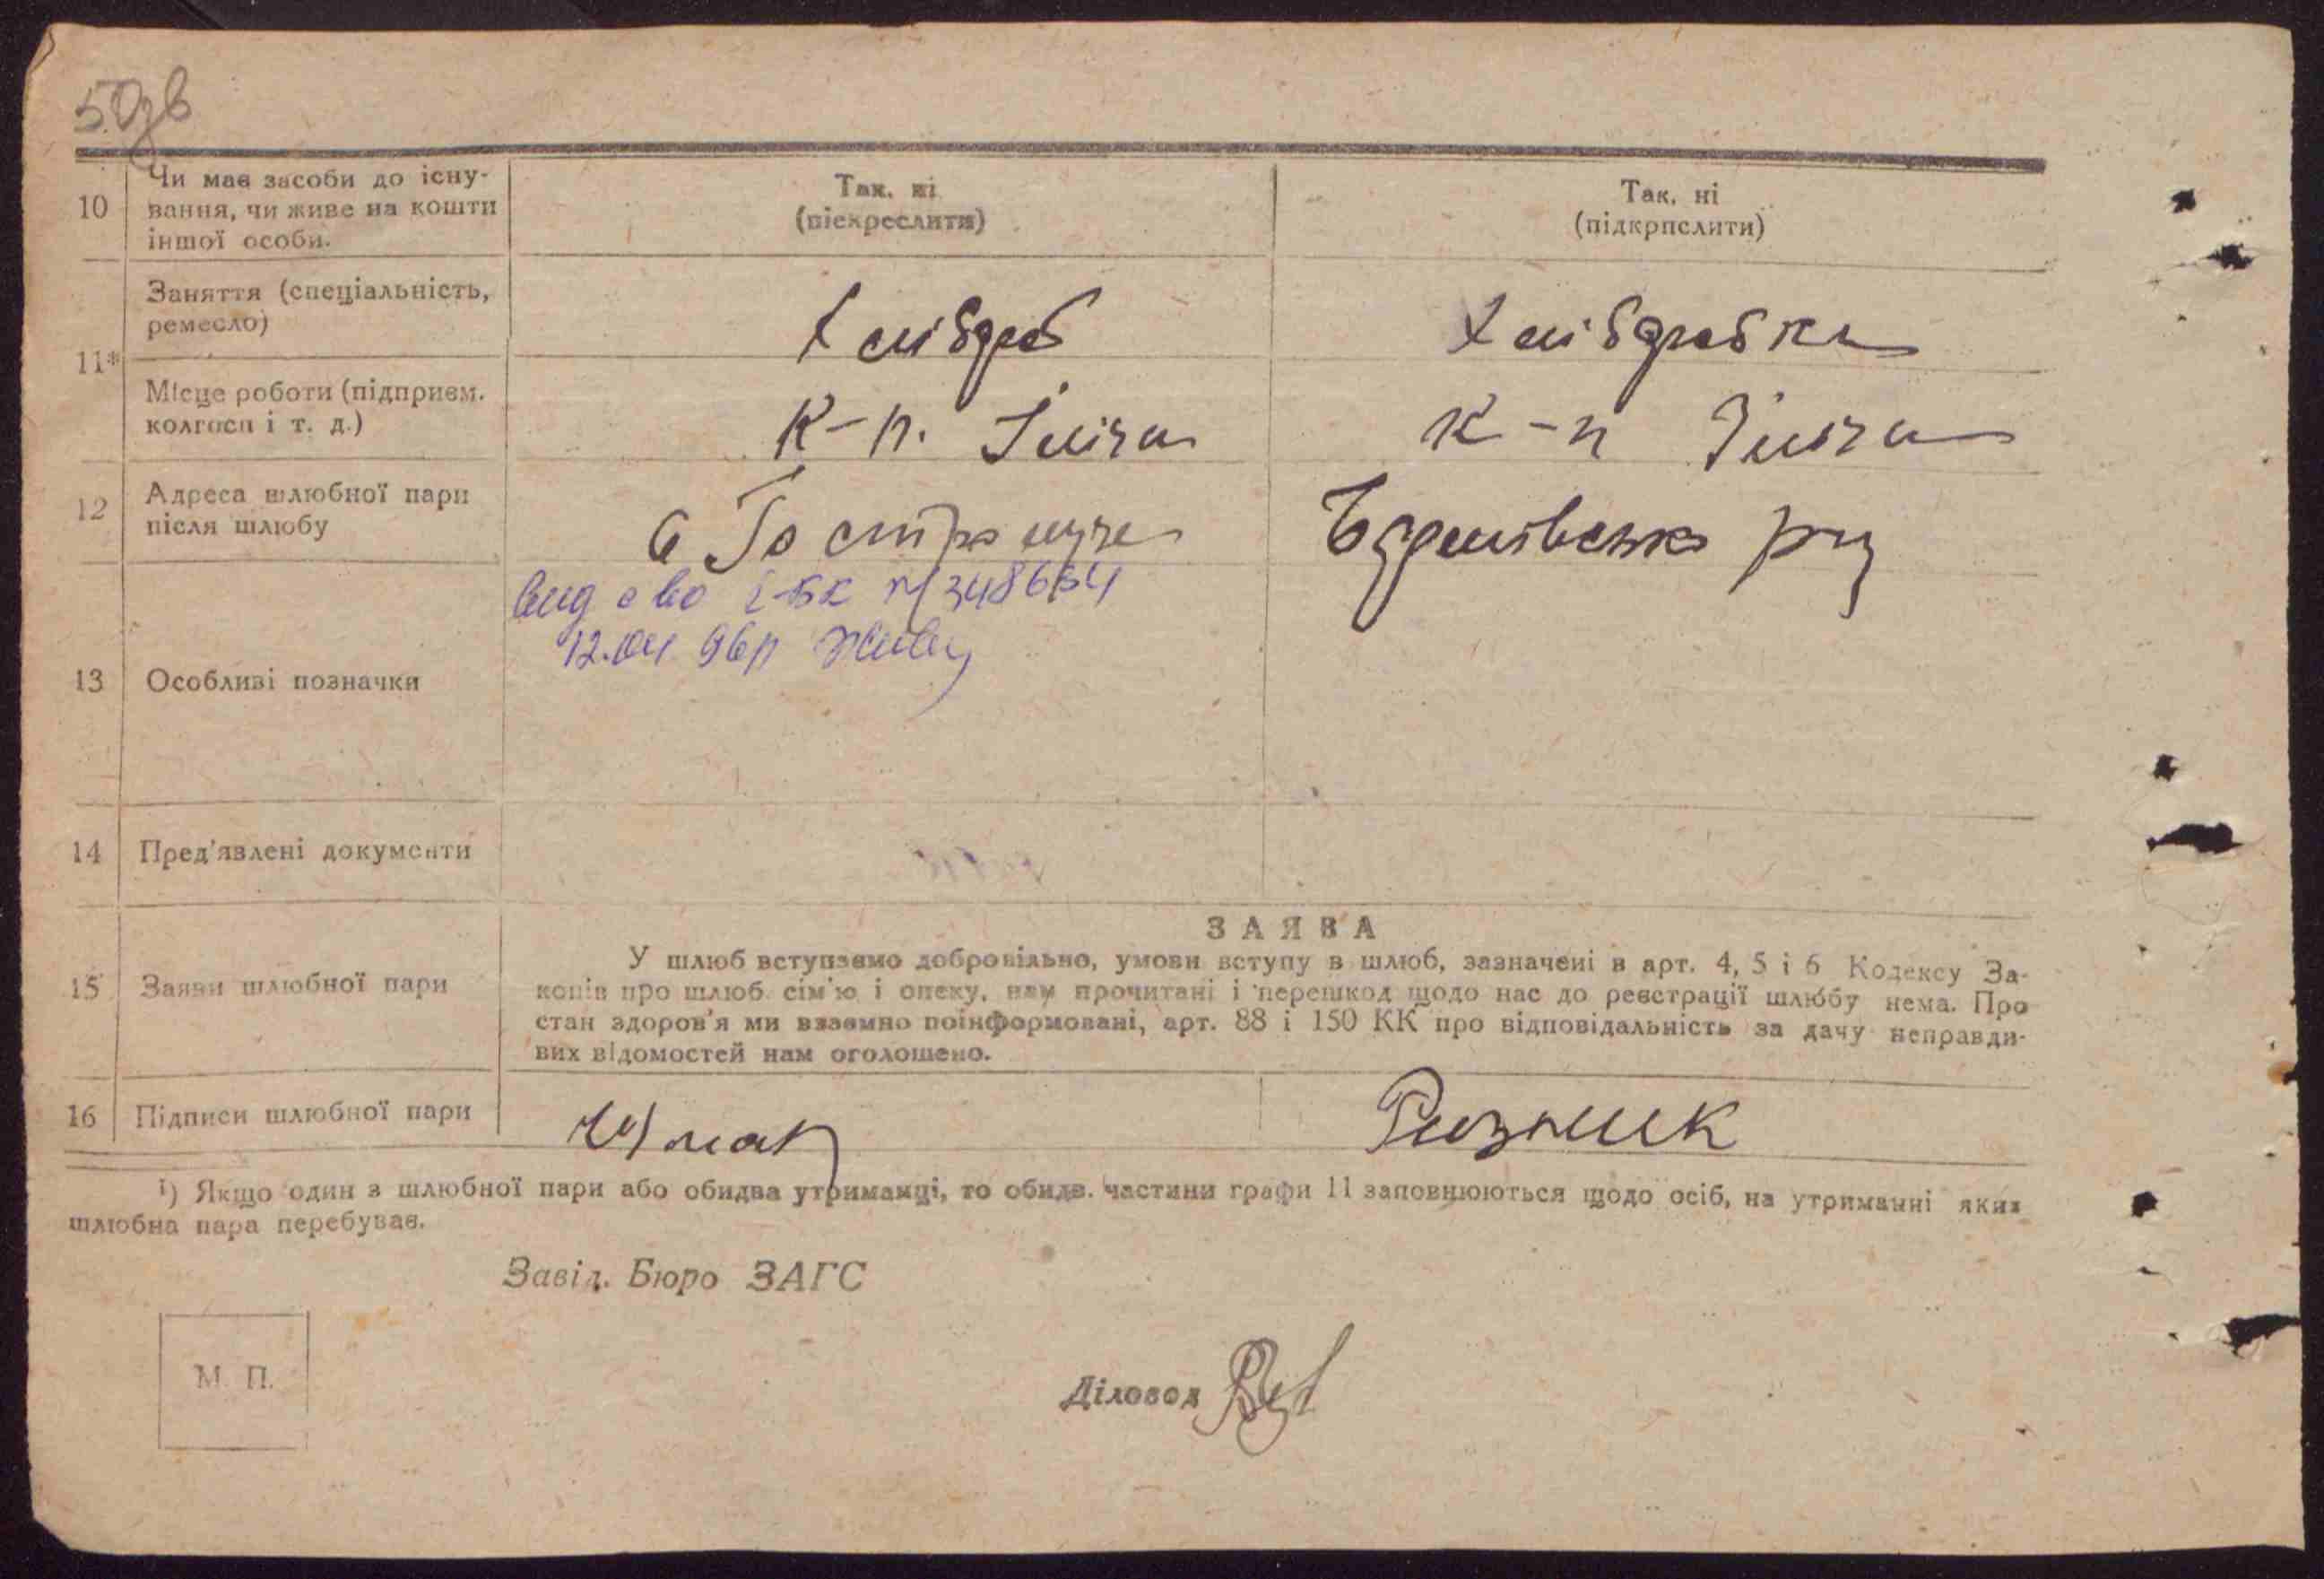 50зв
10 Чи має засоби до існу-
вання, чи живе на кошти
іншої особи.
Так. ні
(піскреслити)
Так, ні
(підкрпслити)
11*
Заняття (спеціальність,
ремесло)
Хлібороб
Хліборобка
Місце роботи (підприєм.
колгосп і т. д.)
К-п. Ілліча
К-п Ілліча
12 Адреса шлюбної пари
після шлюбу
с Гостролуччя
Баришівсько р-ну
13 Особливі позначки
Вид с во І-БК № 348654
12.04 96р
14 Пред'явлені документи
15 Заяви шлюбної пари
ЗАЯВА
У шлюб вступаємо добровільно, умови вступу в шлюб, зазначені в арт. 4, 5 і 6 Кодексу За-
конів про шлюб сім'ю і опеку, нам прочитані і перешкод щодо нас до реєстрації шлюбу нема. Про
стан здоров'я ми взаємно поінформовані, арт. 88 і 150 КК про відповідальність за дачу неправди-
вих відомостей нам оголошено.
16 Підписи шлюбної пари
Ризник
¹) Якщо один з шлюбної пари або обидва утриманці, то обидв. частини графи 11 заповнюються щодо осіб, на утриманні яких
шлюбна пара перебуває.
Завід. Бюро ЗАГС
М. П.
Діловод